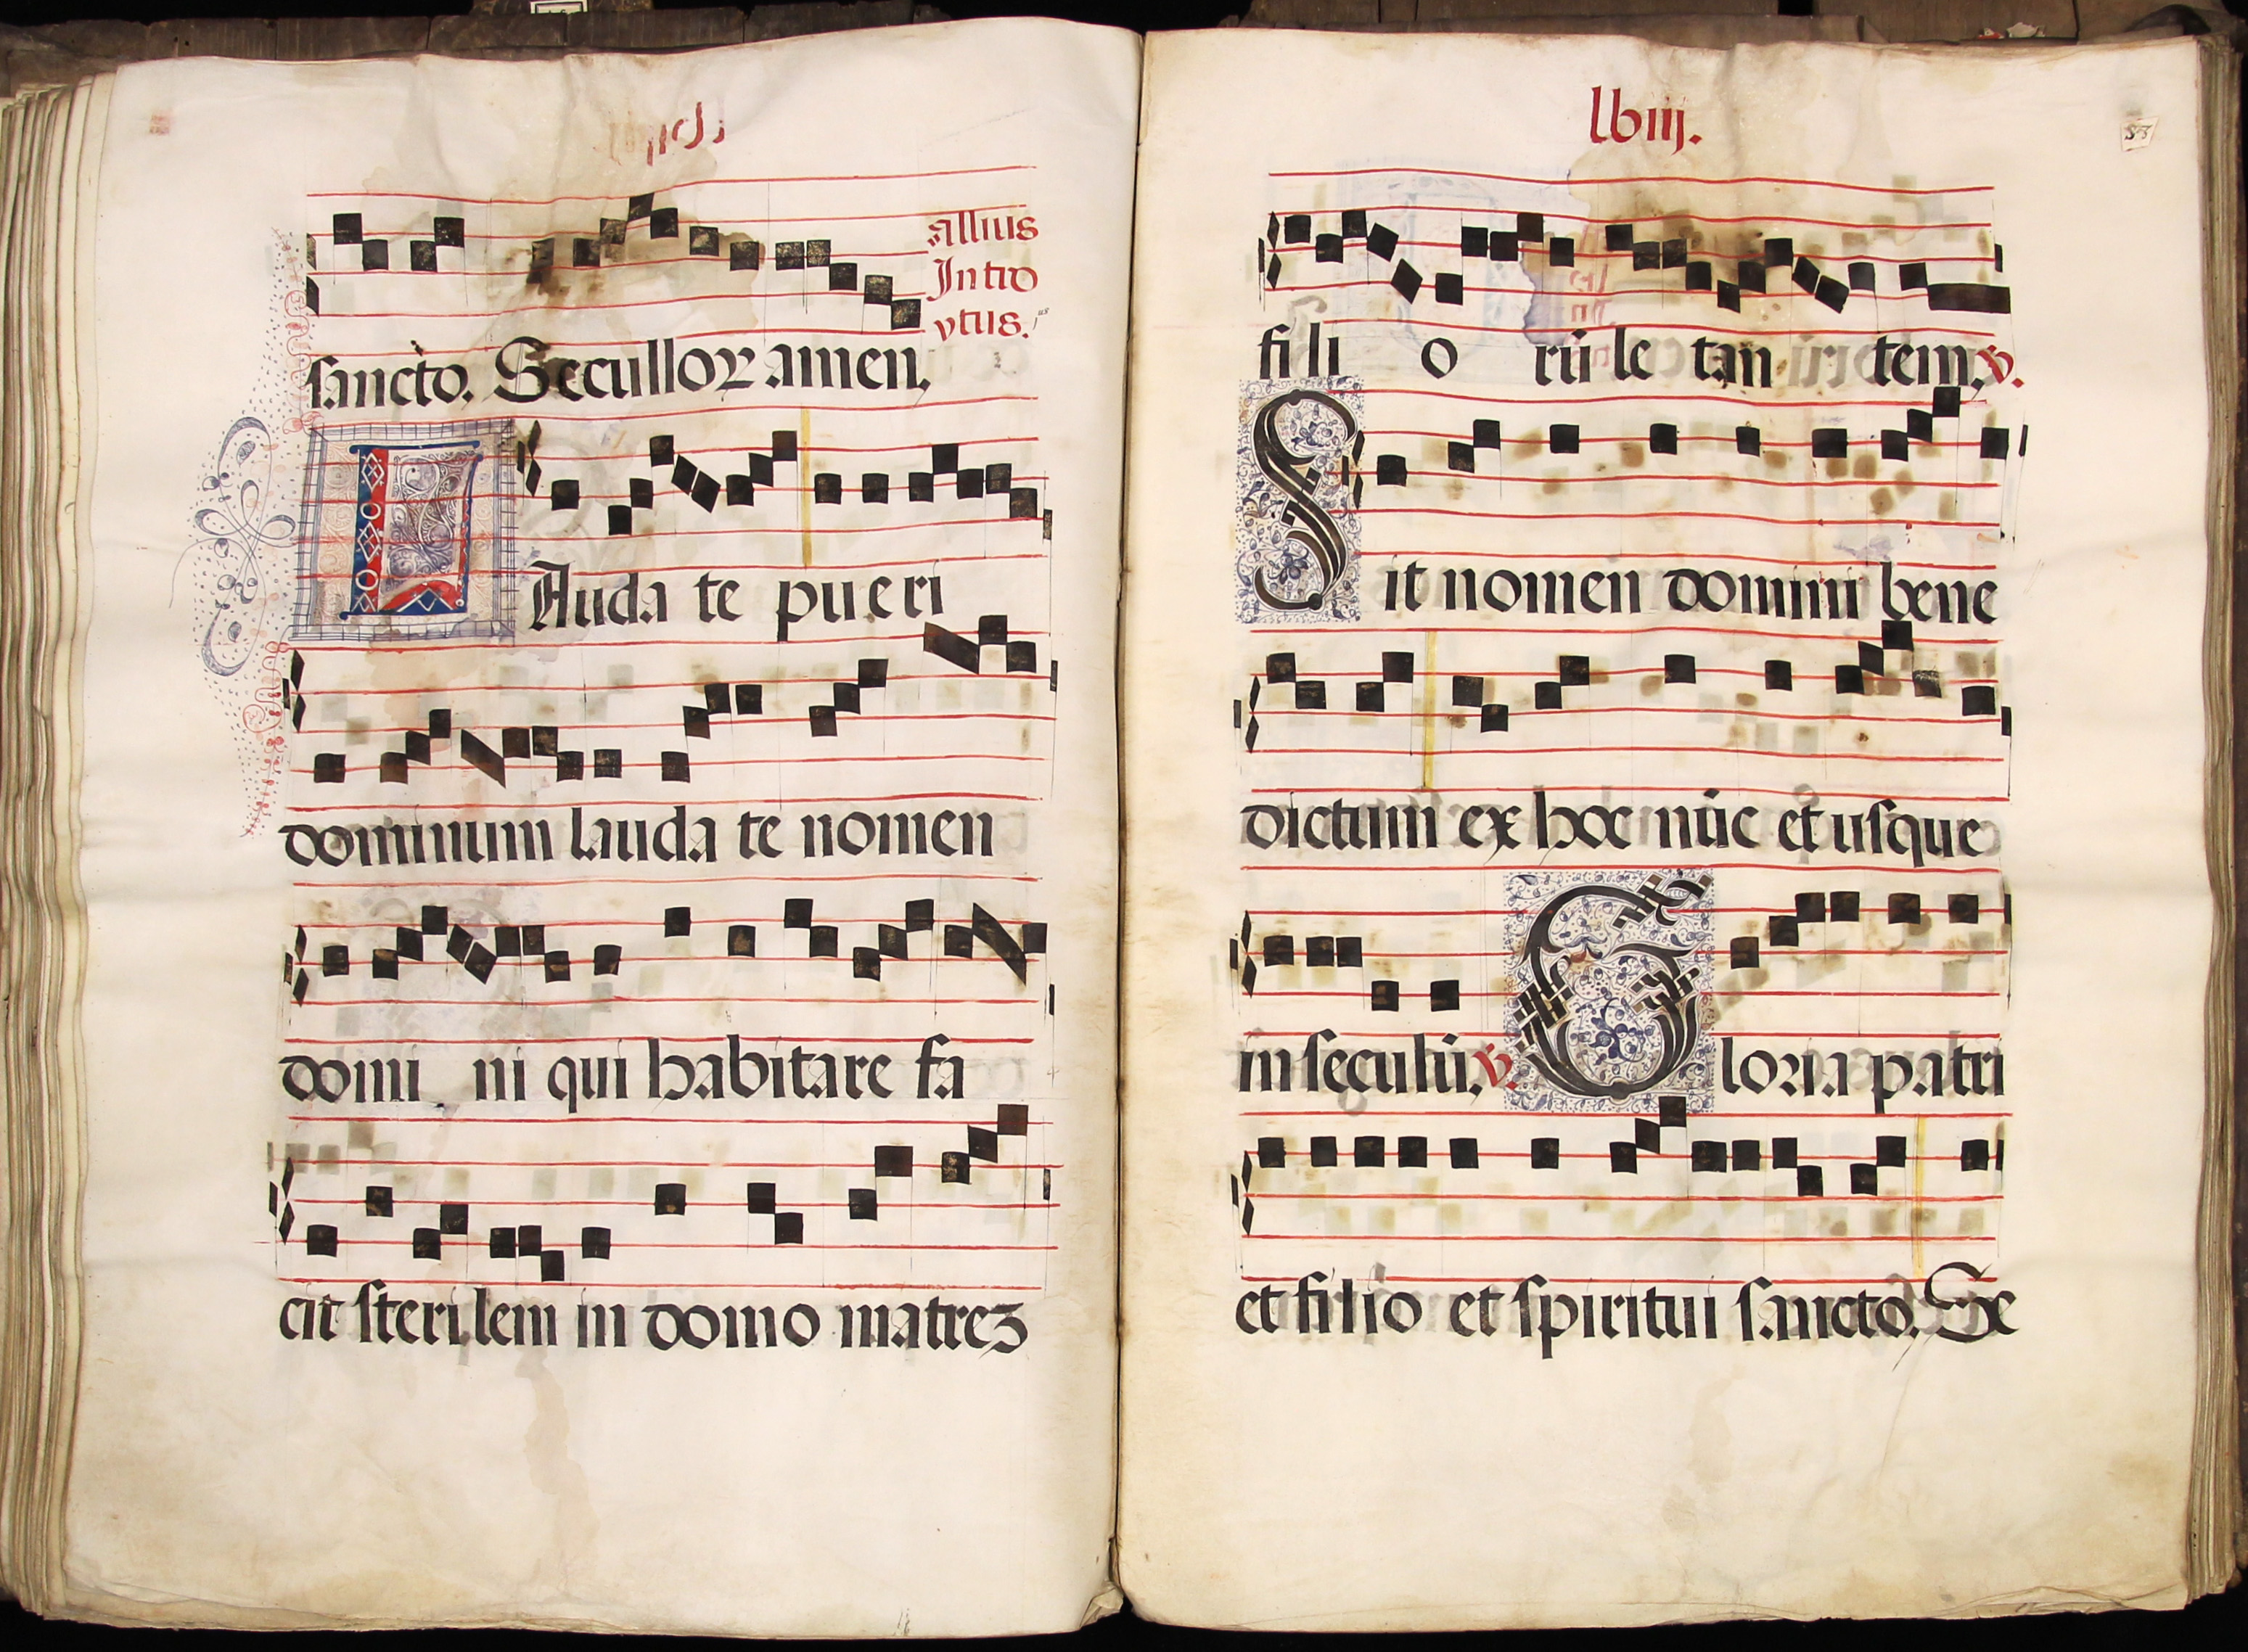 sancto. Secullorꝝ amen.
Allius
Intro
ytus.
LAuda te pueri
dominum lauda te nomen
domi ni qui habitare fa
cit sterilem in domo matreʒ
lviij.
53
fi li o rū le tan tem. v.
Sit nomen domini bene
dictum ex hoc nūc et usque
in seculū. v. Gloria patri
et filio et spiritui sancto. Se